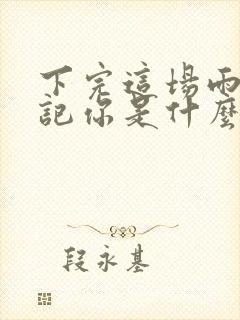 下完這場雨
記你是什麼
段永基